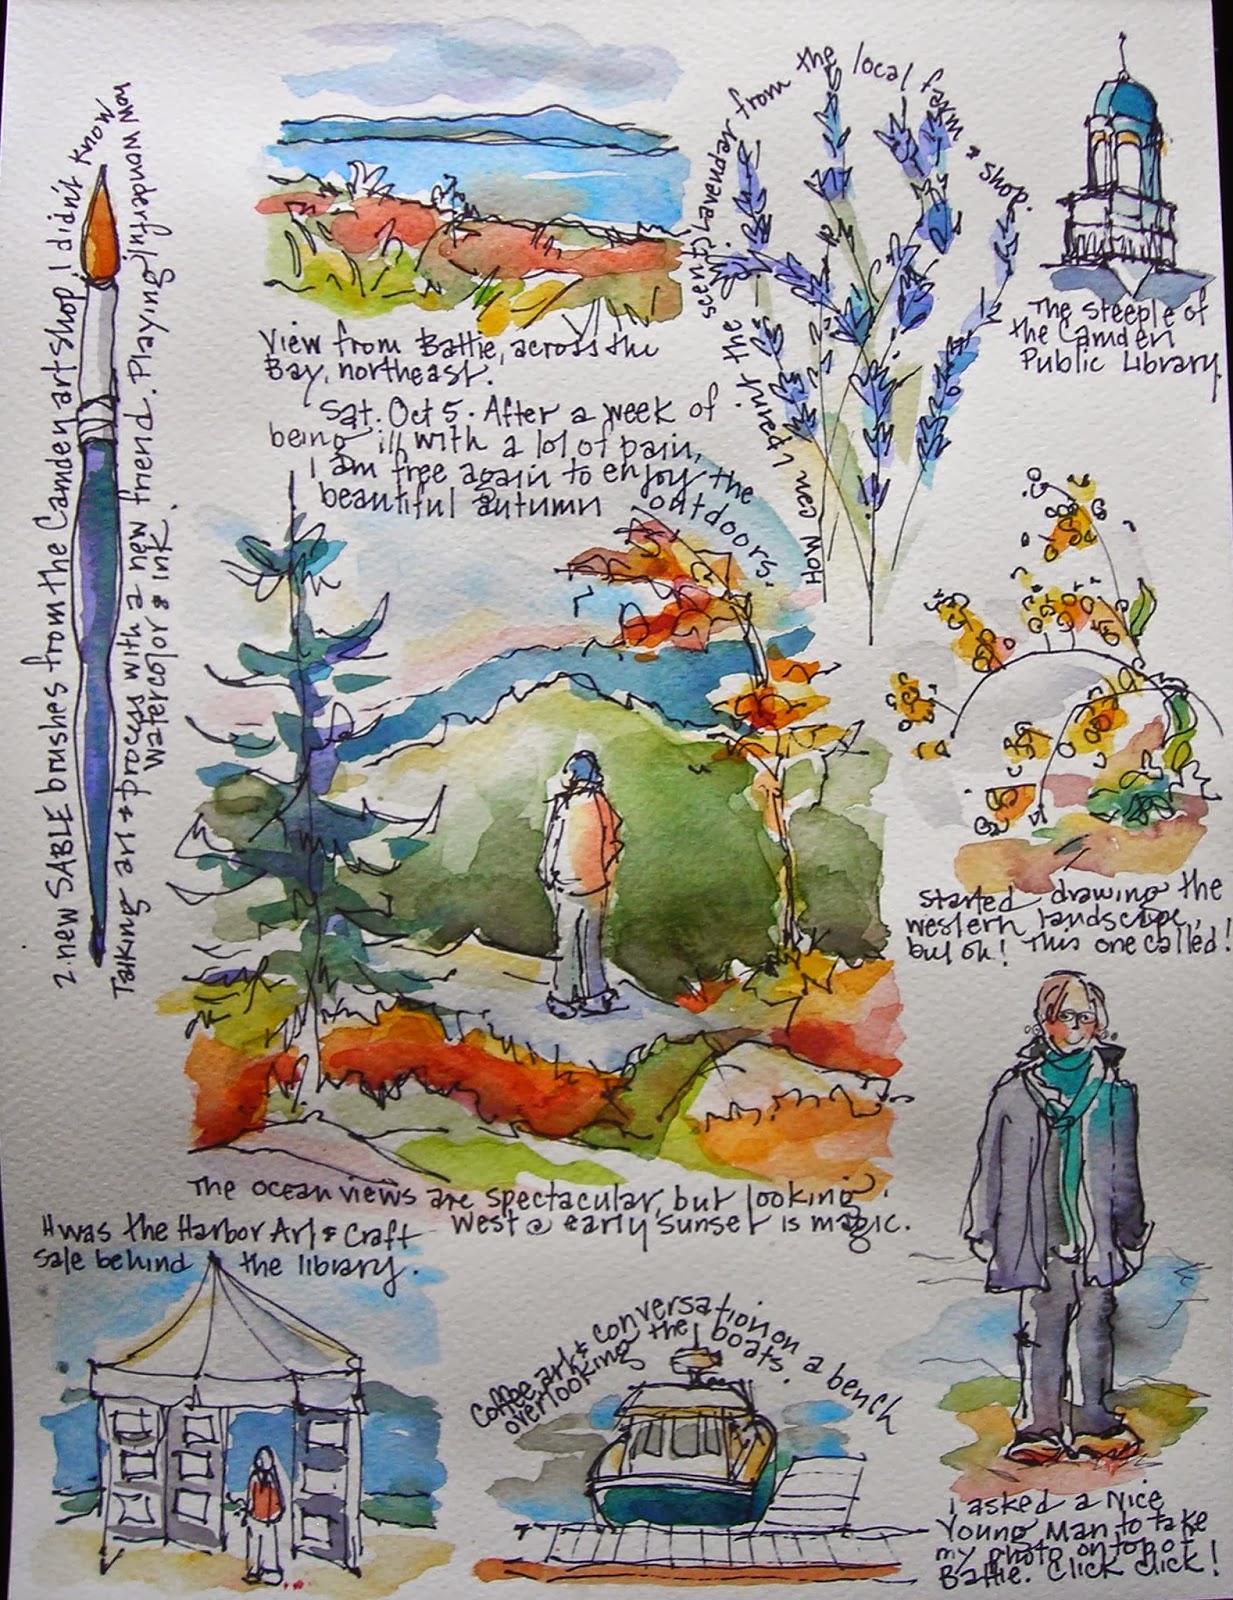 2 new SABLE brushes from the Camden art shop. I didn't know
how wonderful!
Talking art & process with a new friend. Playing
watercolor & ink.
View from Battie, across the
Bay, northeast.
Sat. Oct 5. After a week of
being ill with a lot of pain,
I am free again to enjoy the
beautiful autumn outdoors.
How can I the scent of Lavender from the local farm & shop.
The Steeple of
the Camden
Public Library.
Started drawing the
western landscape,
but oh! This one called!
The ocean views are spectacular, but looking
West @ early sunset is magic.
It was the Harbor Art & Craft
sale behind the library.
Coffee, art & conversation on a bench
overlooking the boats.
I asked a Nice
Young Man to take
my photo on top of
Battie. Click Click!